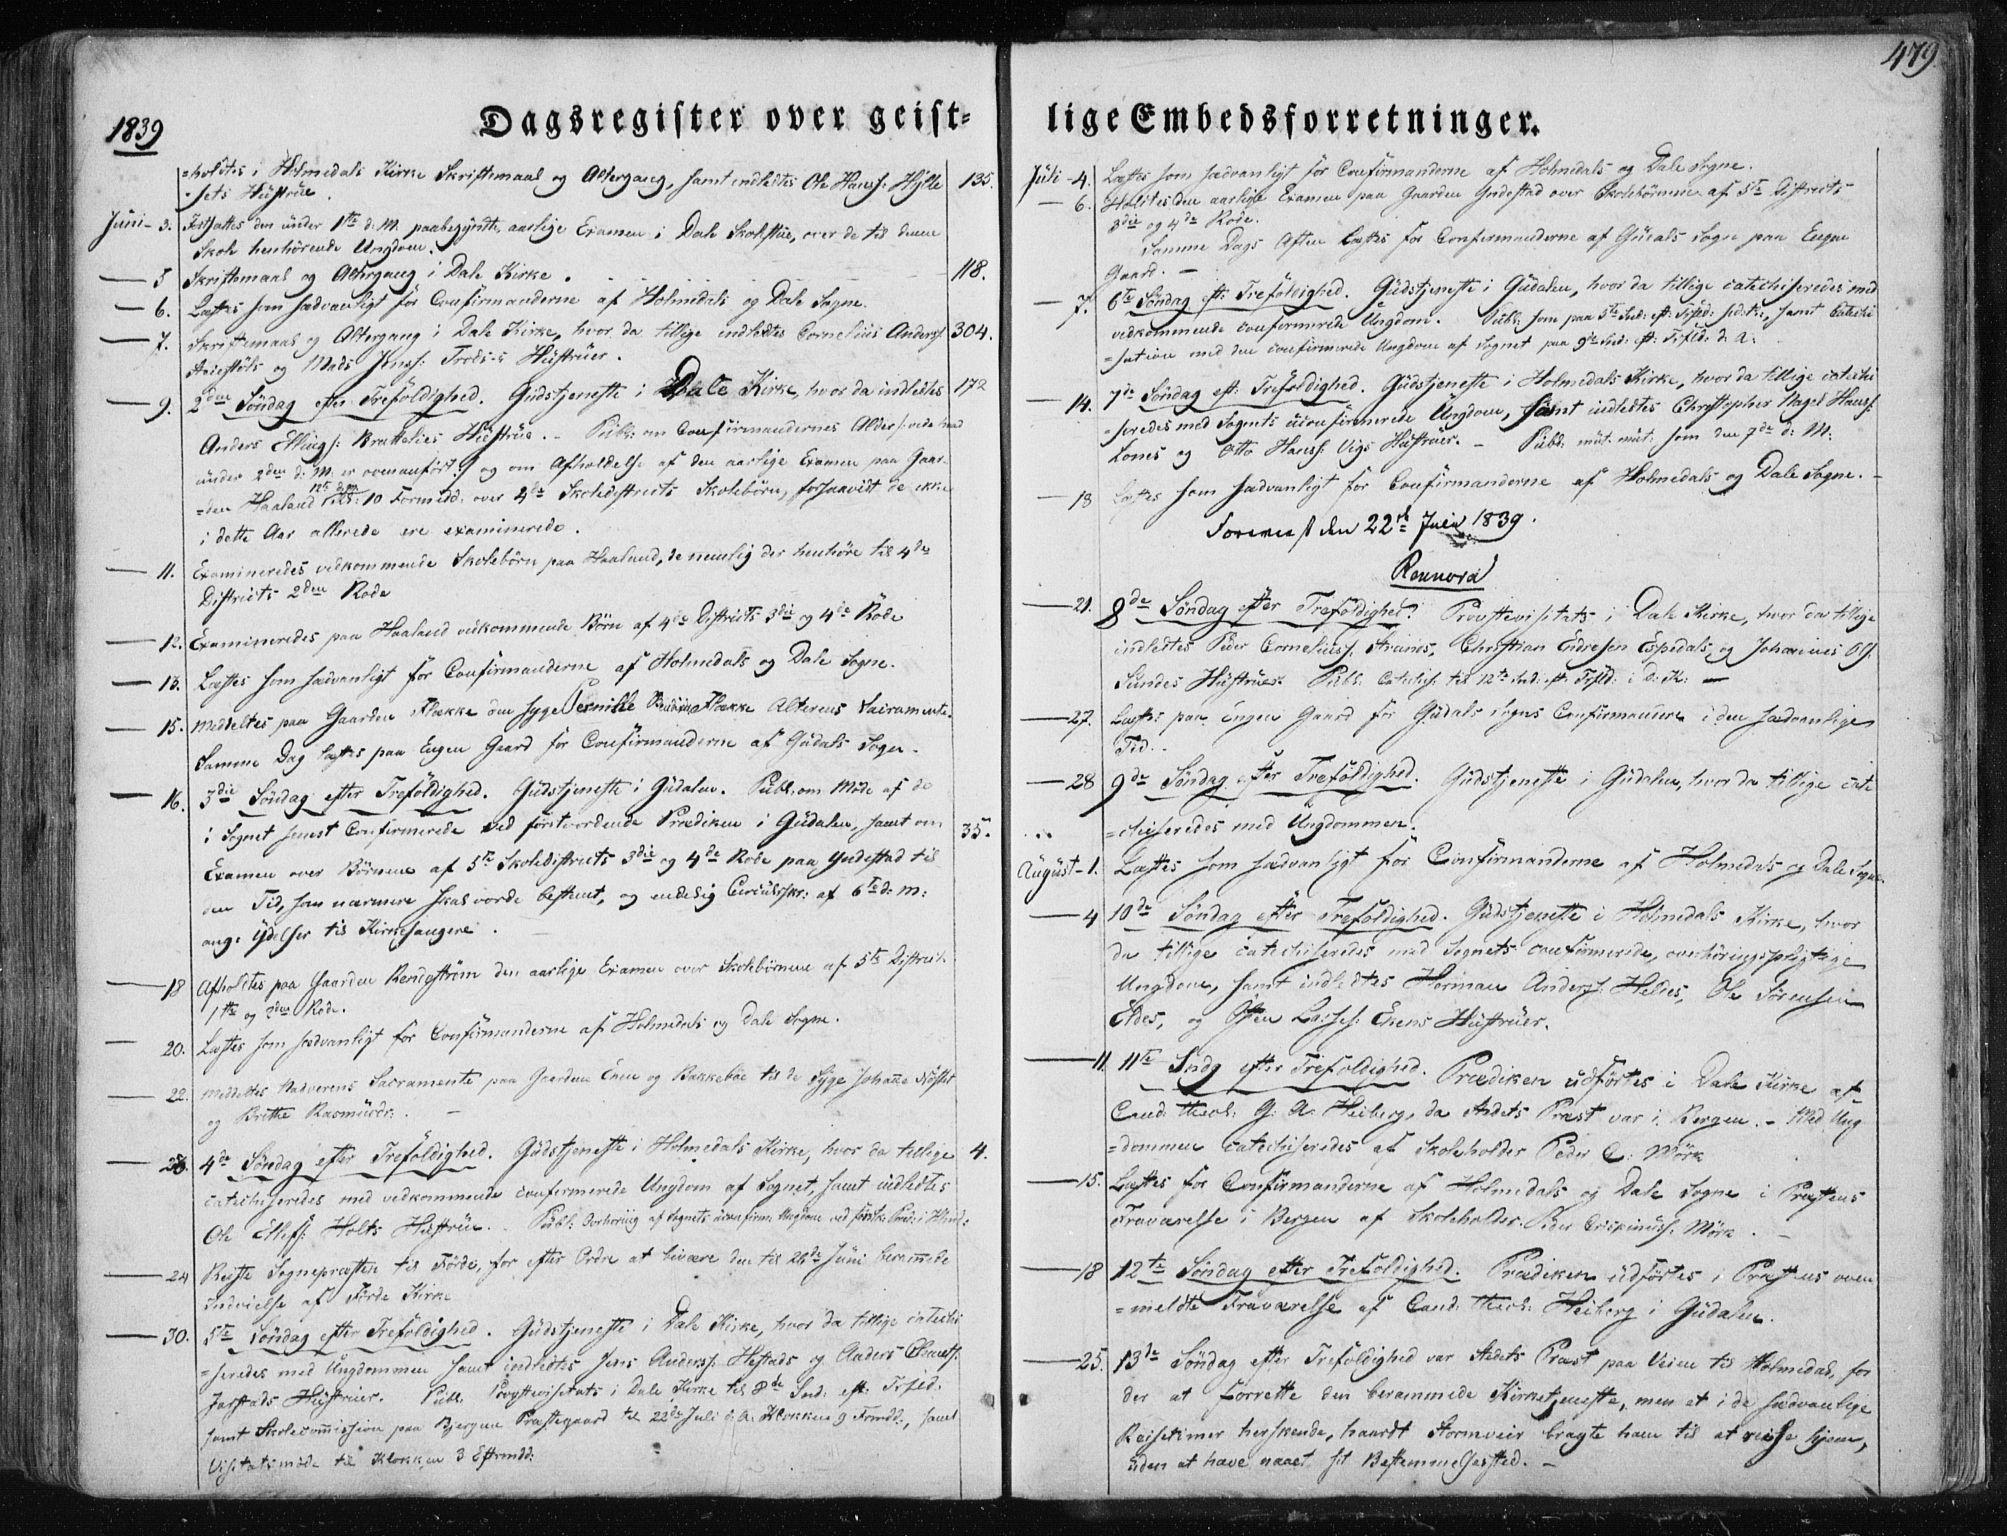 479.
1839
Dagsregister over geist-
=holdtes i Holmedals Kirke Skriftemaal og Altergang, samt indledtes Ole Hanss: Hjlle 135.
=sets Hüstrüe.
Juni - 3. den ünder 1ste d: M. paabegyndte aarlige Examen i Dale Skolstue, over de til denne
Skole henhörende Ungdom.
— 5 Skriftemaal og Altergang i Dale Kirke. 118.
— 6. Læstes som sædvanligt for Confirmanderne af Holmedals og Dale Sogne.
— 7. Skriftemaal og Altergang i Dale Kirke, hvor da tillige indledtes Cornelius Anders: 304.
og Mads Jenss: Hüstrüer.
— 9. 2den Søndag efter Trefoldighed. Güdstjeneste i Dale Kirke, hvor da indledtes 172
Anders Ellings: Hüstrüe. - Publ: om Confirmandernes Alder
ünder 2den d: M: er ovenanført) og om Afholdelse af den aarlige Examen paa Gaar-
=den Haaland 12te d.M. Kl: 10 Formidd: over 4de Skoledistricts Skolebörn, forsaavidt de ikke
i dette Aar allerede ere examinerede.
— 11. Examineredes vedkommende Skolebörn paa Haaland, de nemlig der henhöre til 4de
Districts 2den Rode
— 12. Examineredes paa Haaland vedkommende Börn af 4de Districts 3die og 4de Rode
— 13. Læstes som sædvanligt for Confirmanderne af Holmedals og Dale Sogne.
— 15. Meddeltes paa Gaarden Flække den syge Pernille Flække Alterens Sacramente.
Samme Dag læstes paa Engen Gaard for Confirmanderne af Güdals Sogn.
— 16. 3die Søndag efter Trefoldighed. Güdstjeneste i Güdalen. Publ: om Möde af de
i Sognet senest Confirmerede ved förstvordende Prædiken i Güdalen, samt om 35.
Examen over Börnene af 5te Skoledistricts 3die og 4de Rode paa Yndestad til
den Tid, som nærmere skal vorde bestemt, og endelig Circulskr: af 6te d: M:
ang: Ydelser til Kirkesangere.
— 18 Afholdtes paa Gaarden den aarlige Examen over Skolebörnene af 5te District:
1ste og 2den Rode.
— 20. Læstes som sædvanligt for Confirmanderne af Holmedals og Dale Sogne.
— 22. Meddeltes Nadverens Sacramente paa Gaarden og Bakkeböe til de Syge Johanne
og Brithe Rasmüsdr:.
— 23. 4de Søndag efter Trefoldighed. Güdstjeneste i Holmedals Kirke, hvor da tillige 4.
catechiseredes med vedkommende confirmerede Ungdom af Sognet, samt indledtes
Ole Ellefs: Holts Hüstrüe. Publ: Overhöring af Sognets Ungdom ved förste Præd: i
— 24 Reiste Sognepræsten til Förde, for efter Ordre at bivære den til 26de Jüni berammede
Indvielse af Förde Kirke
— 30. 5te Søndag efter Trefoldighed. Güdstjeneste i Dale Kirke, hvor da tillige catechi
=seredes med Ungdommen samt indledtes Jens Anderss: Hestads og Anders
Jarstads Hüstrüer. Publ. Provstevisitats i Dale Kirke til 8de Snd: eft: Trfld:
samt Skolecommission paa Præstegaard til 22de Juli d: A: Klokken 9 Formdd:, samt
Visitatsmöde til Klokken 3 Eftrmdd:
lige Embedsforretninger.
Jüli - 4. Læstes som sædvanligt for Confirmanderne af Holmedals og Dale Sogne.
— 6. Holdtes den aarlige Examen paa Gaarden Yndestad over Skolebörnene af 5te Districts
3die og 4de Rode.
Samme Dags Aften læstes for Confirmanderne af Güdals Sogn paa Engen
Gaard. —
— 7. 6te Søndag eft: Trefoldighed. Güdstjeneste i Güdalen, hvor da tillige catechiseredes med
vedkommende confirmerede Ungdom. Publ: som paa 5te Snd: eft: Trfld: samt Catechi
=sation med den confirmerede Ungdom af Sognet paa 9de Snd: eft: Trfld: d: A:
— 14. 7de Søndag eft: Trefoldighed. Güdstjeneste i Holmedals Kirke, hvor da tillige catechi
=seredes med Sognets Ungdom, samt indledtes Christopher Nagel Hanss:
Lones og Otto Hanss: Vigs Hüstrüer. - Publ: müt: müt: som den 7de d: M:
— 18 Læstes som sædvanligt for Confirmanderne af Holmedals og Dale Sogne. —
Foreviist den 22de Julii 1839.
Rennord
— 21. 8de Søndag efter Trefoldighed. Provstevisitats i Dale Kirke, hvor da tillige
indledtes Peder Corneliuss: Christian Endresen Espedals, og Johannes Ols:
Sundes Hüstrüer. Publ: Catechis: til 12te Snd: eft: Trfld: i D: K: —
— 27. Læstes paa Engen Gaard for Güdals Sogns Confirmander i den sædvanlige
Tid.
— 28 9de Søndag efter Trefoldighed. Güdstjeneste i Güdalen, hvor da tillige cate
=chiseredes med Ungdommen.
August - 1. Læstes som sædvanligt for Confirmanderne af Holmedals og Dale Sogne.
— 4 10de Søndag efter Trefoldighed. Güdstjeneste i Holmedals Kirke, hvor
da tillige catechiseredes med Sognets confirmerede, overhöringspligtige
Ungdom, samt indledtes Herman Anderss: Heldes, Ole Sørensen
Eldes, og Lasses: Hüstrüer.
— 11. 11te Sndg efter Trefoldighed. Prædiken udförtes i Dale Kirke af
Cand: theol: G: A: Heiberg, da Stedets Præst var i Bergen. - Med Ung
=dommen catechiseredes af Skoleholder Peder C: Mörk
— 15. Læstes for Confirmanderne af Holmedals og Dale Sogne i Præstens
Fraværelse i Bergen af Skoleholder Peder Crispinuss: Mörk.
— 18 12te Søndag efter Trefoldighed. Prædiken udförtes i Præstens oven
=meldte Fraværelse af Cand: theol: Heiberg i Güdalen.
— 25. 13de Søndag efter Trefoldighed var Stedets Præst paa Veien til Holmedal, for
der at forrette den berammede Kirketjeneste, men at i de sædvanlige
Reisetimer herskende, haardt Stormveir bragte ham til at reise hjem,
uden at have naaet sit Bestemmelsested. —